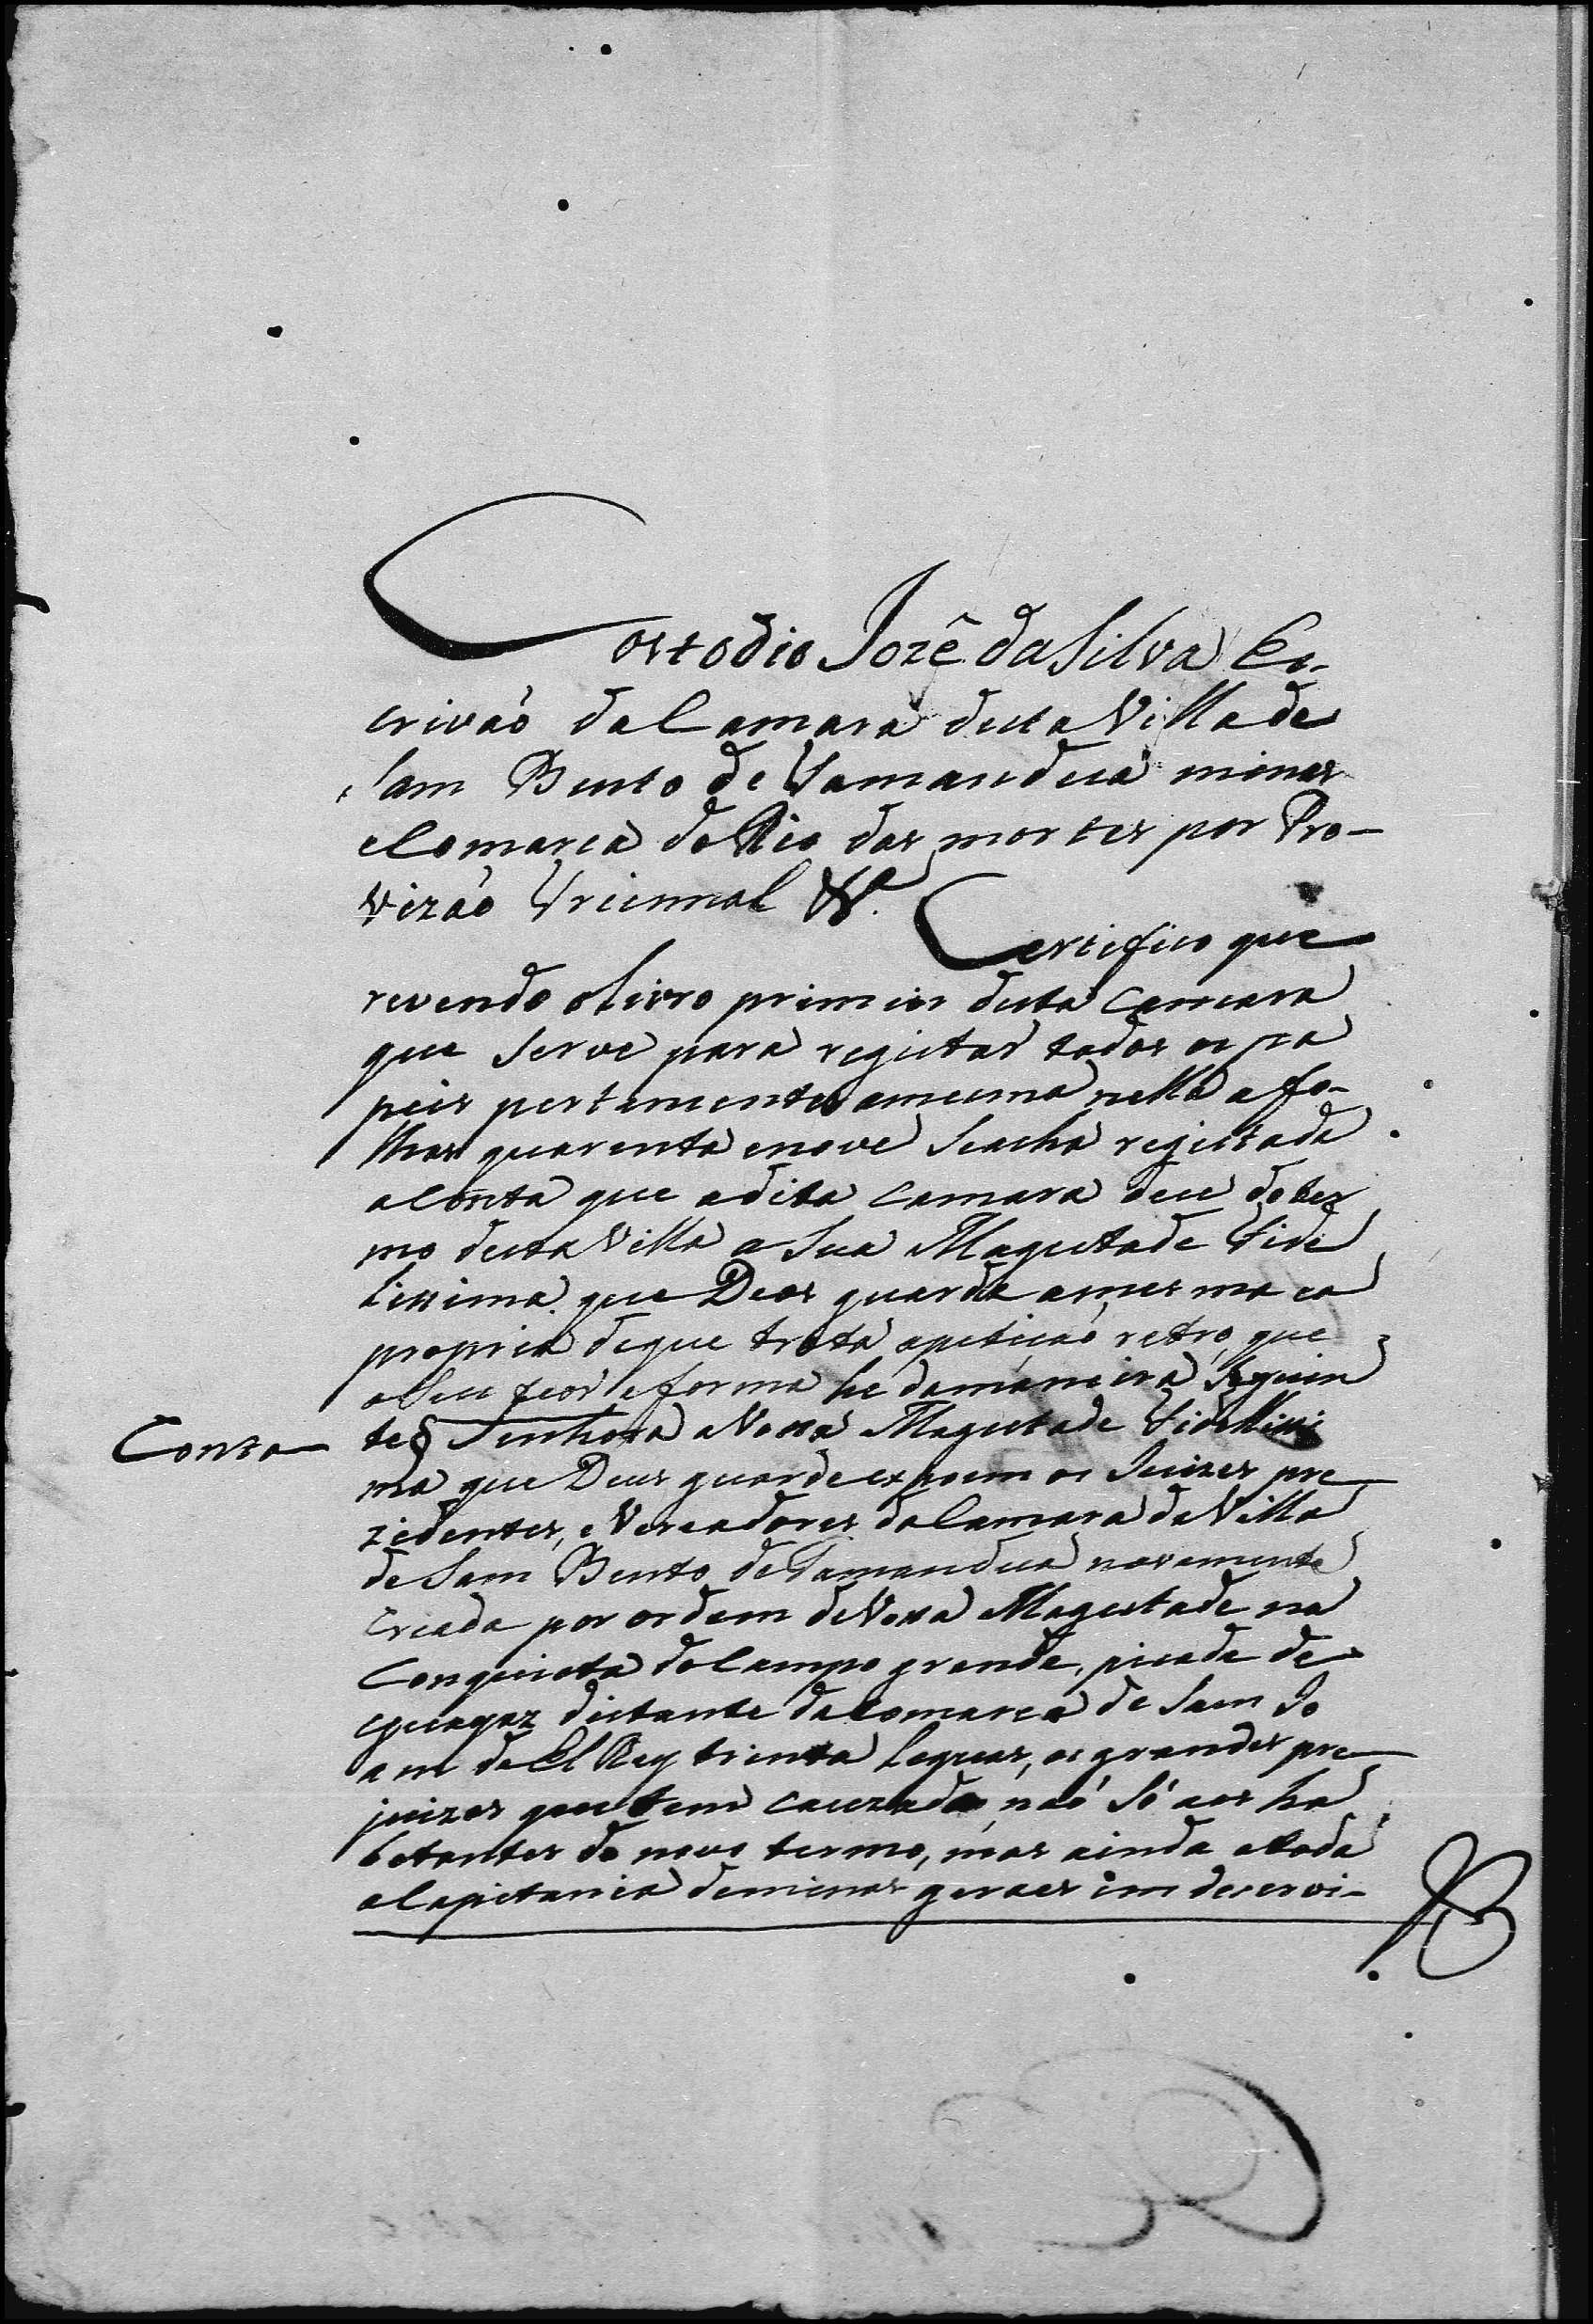 Costodio Jozê da Silva Es-
crivaõ da Camara desta Villa de
Sam Bento de Tamanduá minas
e Comarca do Rio das mortes por Pro-
vizaõ Triennal &ª.
Certifico que
revendo o livro primeiro desta Camara
que serve para registar todos os pa
peis pertencentes amesma nella a fo-
lhas quarenta enove seacha registada
aConta que adita camara deu do ter
mo desta Villa a Sua Magestade Fide
lissima que Deos guarde amesma ea
propria deque trata apetiçaõ retro, que
o seu teor e forma he damaneira seguin
te § Senhora a Vossa Magestade Fidellissi
Conta
ma que Deus guarde expoem os Juizes pre
zidentes, e Vereadores da Camara da Villa
de Sam Bento de Tamanduá novamente
creada por ordem de Vossa Magestade na
Conquista do Campo grande, picada de
goyaz distante da comarca de Sam Jo
am de El Rey trinta legoas, os grandes pre
juizos que tem cauzado, naõ só aos ha
betantes do novo termo, mas ainda atoda
a Capitania deminas geraes im deservi-